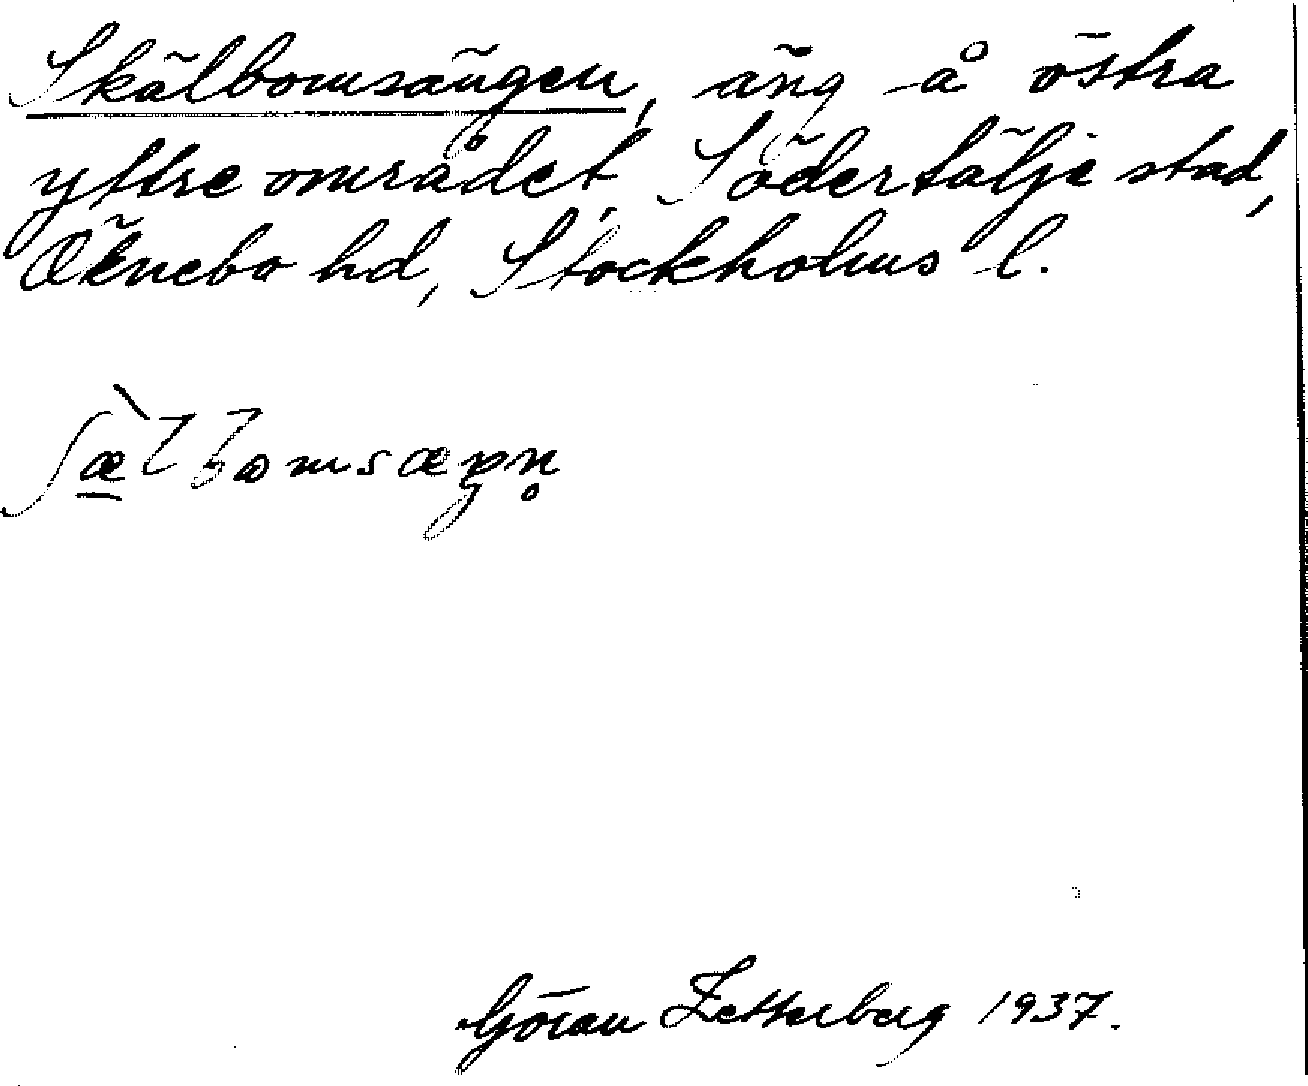 Skälbomsängen, äng å östra
yttre området, Södertälje stad,
Öknebo hd, Stockholms l.
ʃæ̀lbomsæŋn̥
Göran Zetterberg 1937.